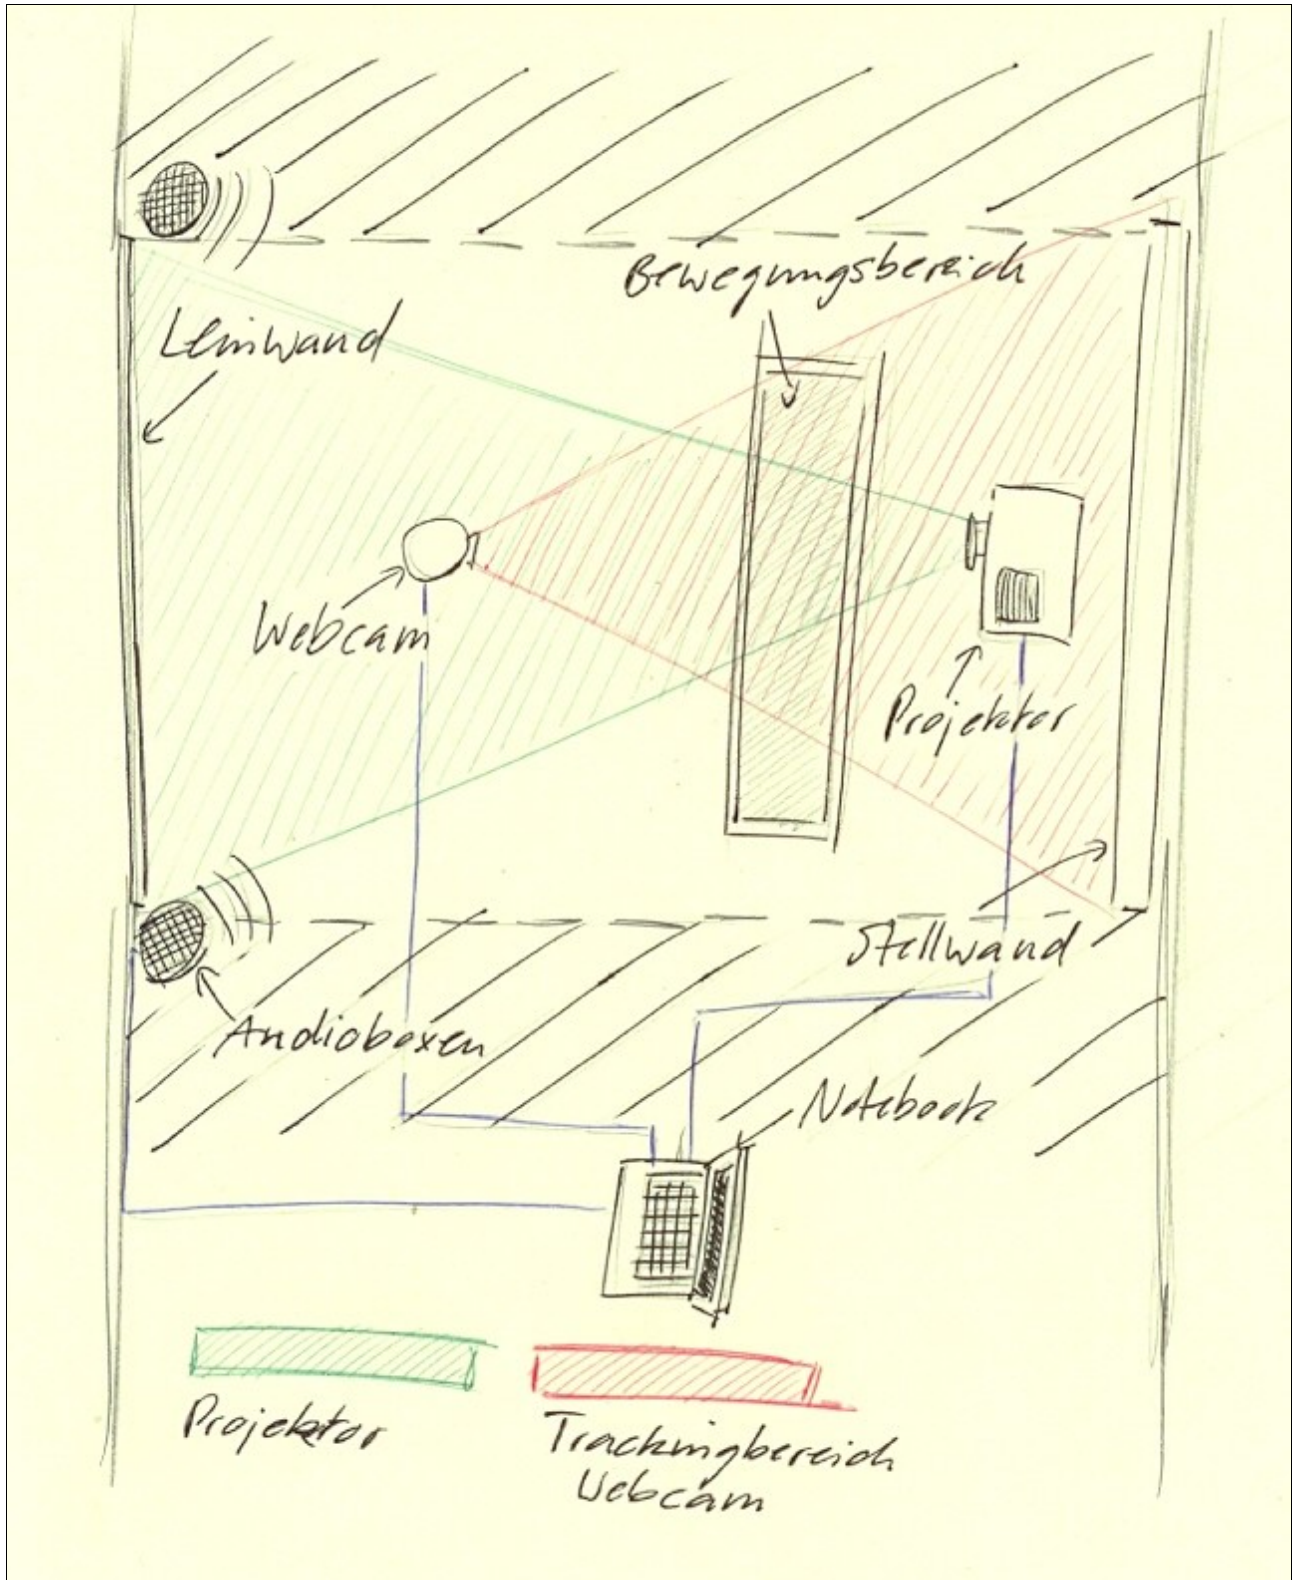 Bewegungsbereich
Leinwand
Webcam
Projektor
Stellwand
Audioboxen
Notebook
Projektor
Trackingbereich
Webcam